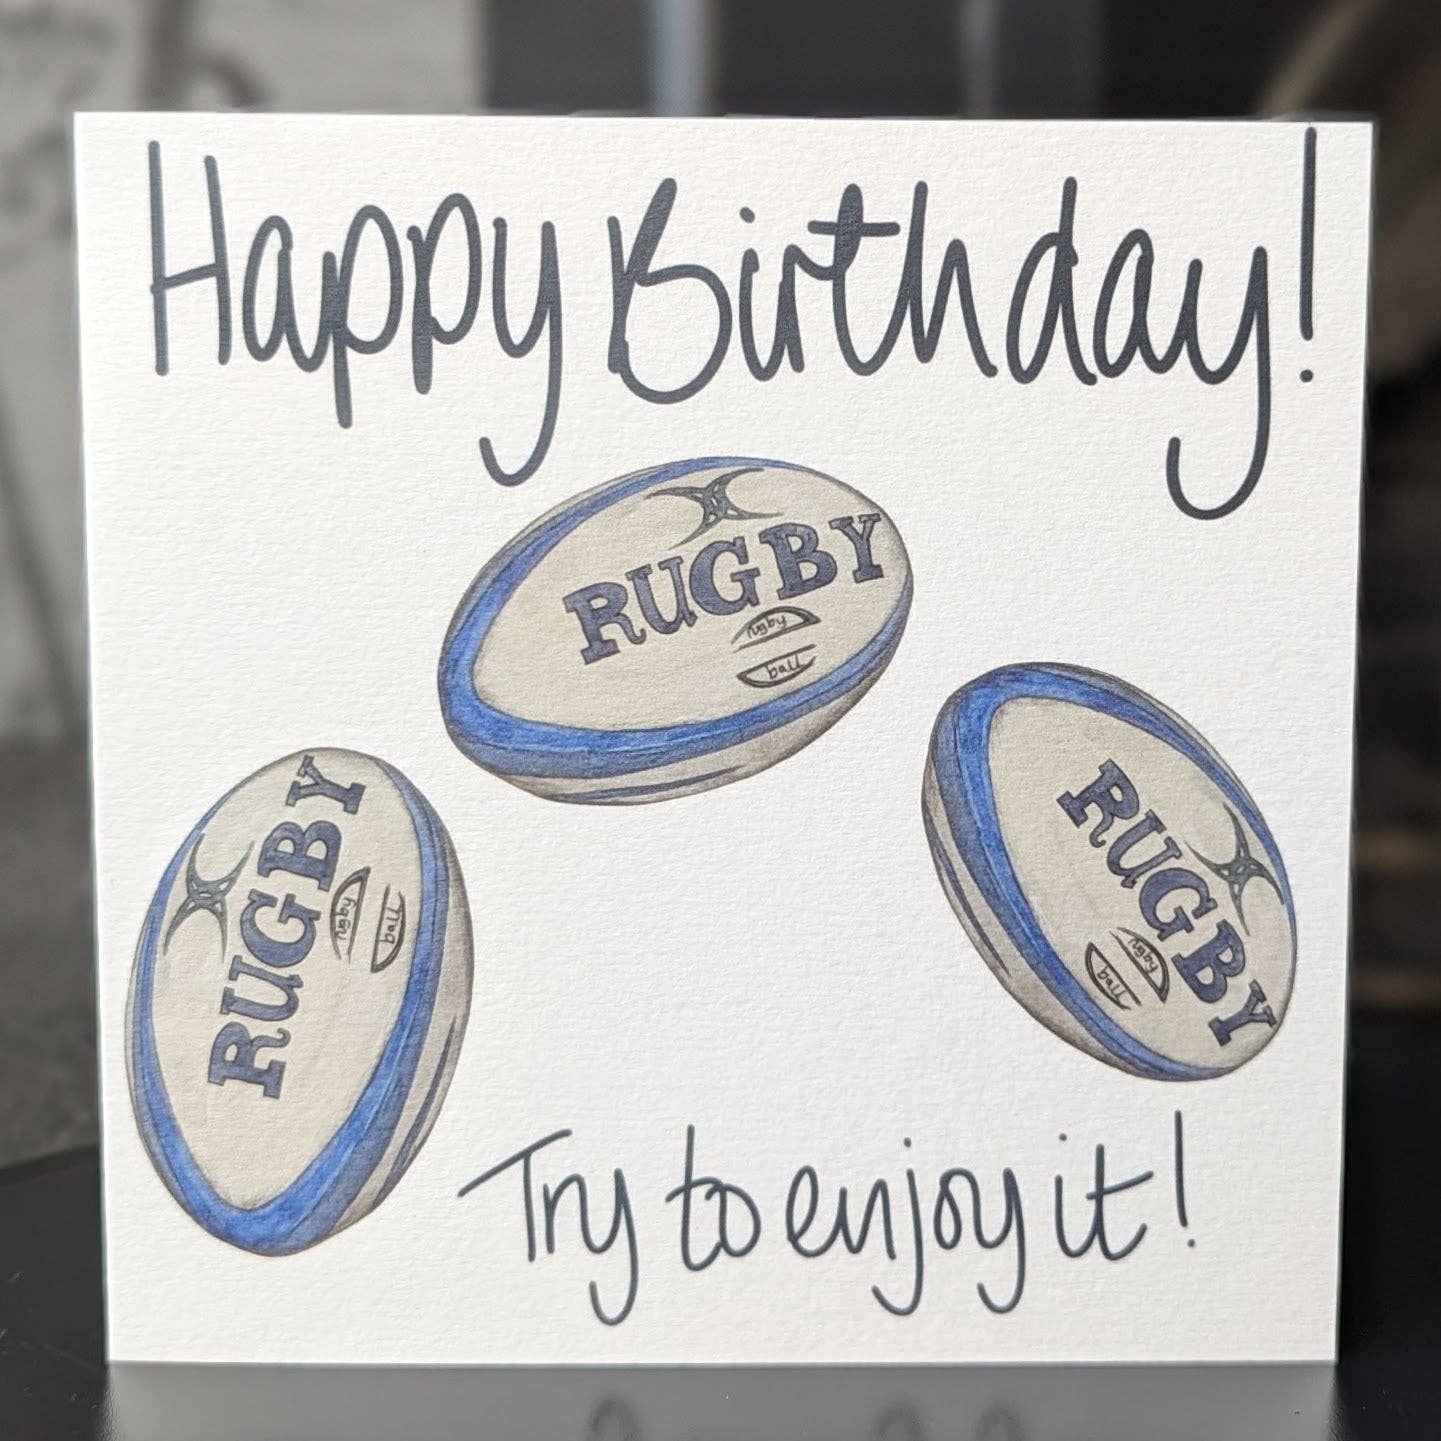 Happy Birthday!
RUGBY
rugby
ball
RUGBY
rugby
ball
RUGBY
rugby
ball
Try to enjoy it!